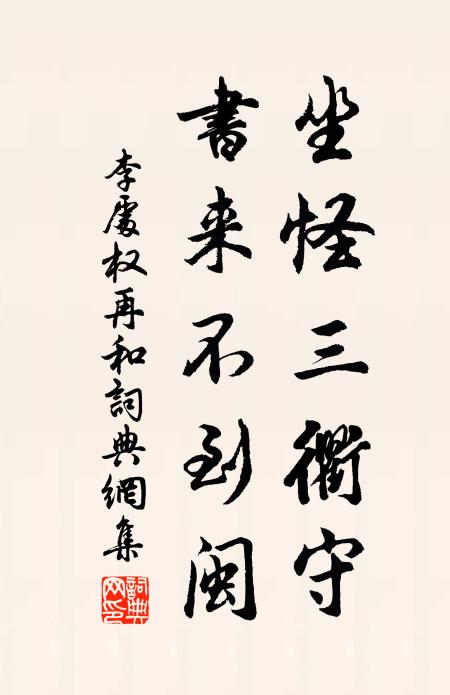 坐怪三衢守
書来不到闽
李處权再和詞典網集
詞典网印